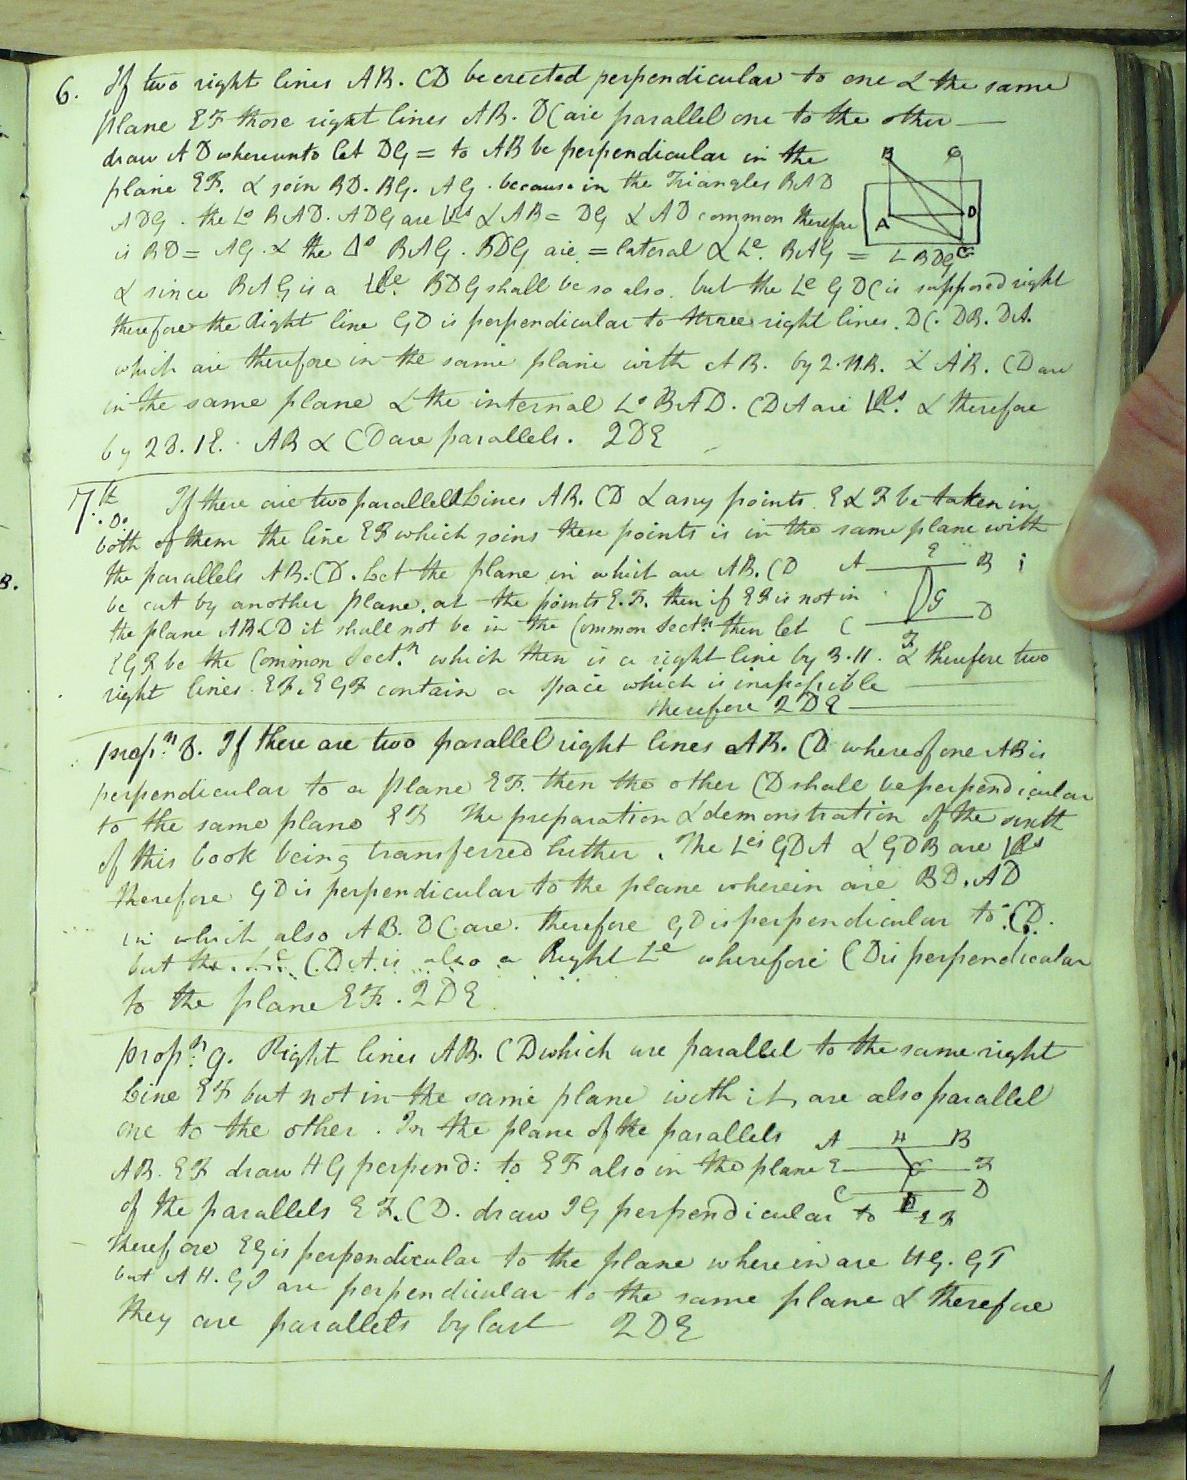 6. If two right lines AB. CD be erected perpendicular to one & the same
plane EF those right lines AB. DC are parallel one to the other
draw AD whereunto let DG = to AB be perpendicular in the
B C
plane EF. & join BD. BG. AG. because in the Triangles BAD
ADG. the Ls BAD. ADG are & AB = DG & AD common therefore
A D
is BD = AG & the Δs BAG. BDG are = lateral & Le. BAG = L BDG
G
& since BAG is a BDG shall be so also. but the Le GDC is supposed right
therefore the Right line GD is perpendicular to three right lines. DC. DB. DA.
which are therefore in the same plane with AB. by 2.11.B. & AB. CD are
in the same plane & the internal Ls BAD. CDA are & therefore
by 28.1E. AB & CD are parallels. 2DE
7th If there are two parallell Lines AB. CD & any points E & F be taken in
both of them the line EF which joins these points is in the same plane with
the parallels AB. CD. Let the plane in which are AB. CD
A E B
be cut by another plane. at the points E. F. then if EF is not in
G
the plane ABCD it shall not be in the Common Sectn. then let
C F D
EGF be the Common Sectn. which then is a right line by 3.11. & therefore two
right lines. EF. EGF contain a space which is impossible
therefore 2DE
B.
propn 8. If there are two parallel right lines AB. CD whereof one AB is
perpendicular to a plane EF. then the other CD shall be perpendicular
to the same plane EF The preparation & demonstration of the sixth
of this book being transferred hither. The Les GDA & GDB are
therefore GD is perpendicular to the plane wherein are BD. AD
in which also AB. DC are. therefore GD is perpendicular to CD.
but the Le CDA is also a Right Le wherefore CD is perpendicular
to the plane EF. 2DE
propn 9. Right lines AB. CD which are parallel to the same right
Line EF but not in the same plane with it, are also parallel
one to the other. In the plane of the parallels
A H B
AB. EF draw HG perpend: to EF also in the plane
E G F
of the parallels EF. CD. draw IG perpendicular to EF
C D
therefore EG is perpendicular to the plane wherein are HG. GI
but AH. GI are perpendicular to the same plane & therefore
they are parallels by last 2DE